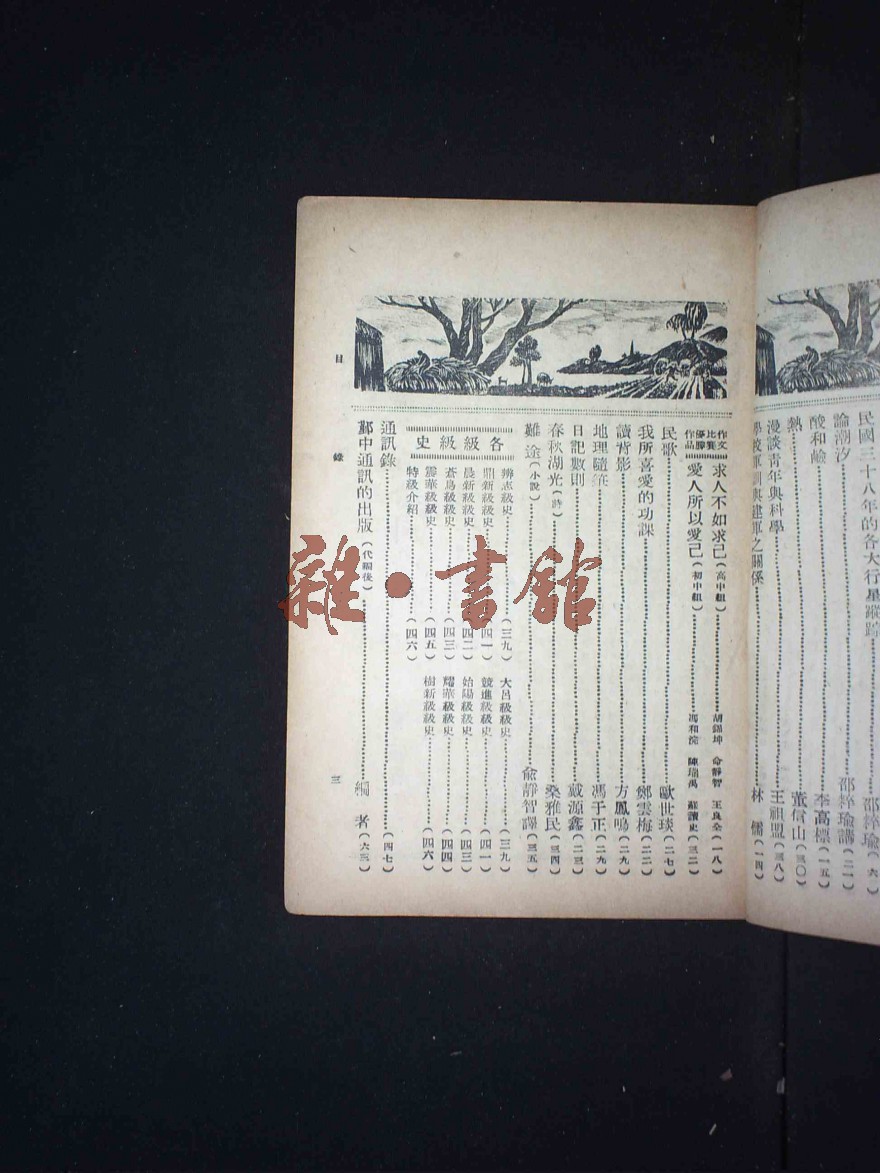 民國三十八年的各大行星蹤踪……邵粹瑜（六）
論潮汐……邵粹瑜講（二一）
酸和鹼……李高標（一五）
熱……董信山（三〇）
漫談青年與科學……王祖盟（三八）
學校軍訓與建軍之關係……林儒（一四）
作文比賽優勝作品
求人不如求己（高中組）……胡錫坤 俞靜智 王良全（一八）
愛人所以愛己（初中組）……馮和浣 陳瑞禹 蘇讀史（三二）
民歌……歐世琰（二七）
我所喜愛的功課……鄭雲梅（二二）
讀背影……方鳳鳴（二九）
地理隨筆……馮于正（二九）
日記數則……戴源鑫（二三）
春秋湖光（詩）……桑雅民（三四）
難途（小說）……俞靜智譯（三五）
各級級史
辨志級史……（三九）
大呂級級史……（三九）
鼎新級級史……（四一）
競進級級史……（四一）
晨新級級史……（四二）
始陽級級史……（四三）
蒼鳥級級史……（四三）
耀華級級史……（四四）
震華級級史……（四五）
樹新級級史……（四六）
特級介紹……（四六）
通訊錄……（四七）
鄞中通訊的出版（代編後）……編者（六三）
目錄
三
雜·書館